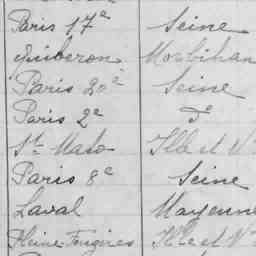 Paris 17e Seine
Quiberon Morbihan
Paris 20e Seine
Paris 2e
St Malo Ille et V
Paris 8e Seine
Laval Mayenne
Pleine Fougères Ille et V